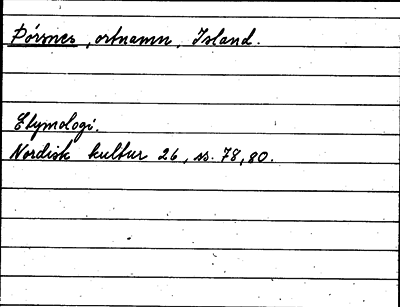 Þórsnes, ortnamn, Island.
Etymologi.
Nordisk kultur 26, ss. 78, 80.